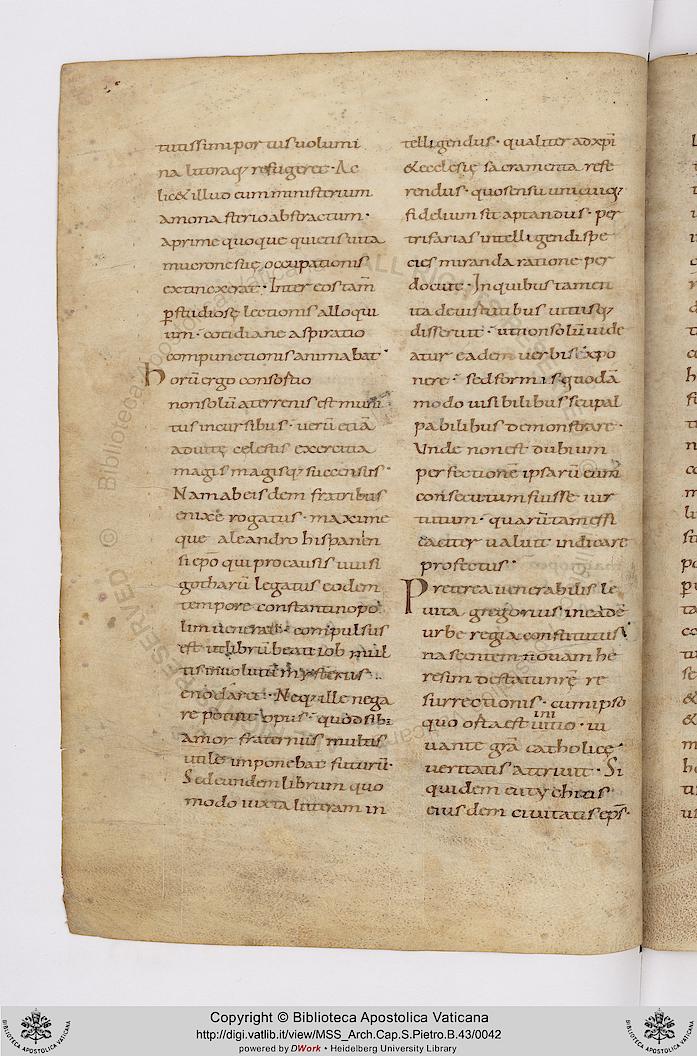 tutissimi portus volumi
na litoraq; refugeret · Ac
lic& illud eum ministerium
amonasterio abstractum ·
aprime quoque quietis vita
mucrone suę occupationis
extinxerat · Inter eos tam̄
p studiosę lectionis alloqui
um · cotidianę aspiratio
compunctionis animabat ·
Horū ergo consortio
non solū aterrenis est muni
tus incursibus · verū etiā
ad vitę celestis exercitia
magis magisq; succensus ·
Nam ab eisdem fratribus
enixe rogatus · maxime
que aleandro hispanen
si ep̄o qui pro causis uuisi
gothorū legatus eodem
tempore constantinopo
lim venerat · compulsus
est ut librū beati iob mul
tis involutū mysteriis ·
enodaret · Neq; ille nega
re potuit opus · quod sibi
amor fraternus multis
utile imponebat futurū ·
Sed eundem librum quo
modo iuxta litteram in
telligendus · qualiter ad xp̄i
& ecclesię sacramenta refe
rendus · quo sensu unicuiq;
fidelium sit aptandus · per
trifarias intelligendi spe
cies miranda ratione per
docuit · In quibus tamen
ita de virtutibus vitiisq;
disseruit · ut non solū vide
atur eadem verbis expo
nere · sed formis quodā
modo visibilibus scu palpabilibus demonstrare ·
Unde non est dubium
perfectionē ipsarū eum
consecutum fuisse vir
tutum · quarū tam effi
caciter valuit indicare
profectus ·
Preterea venerabilis le
vita gregorius in eadē
urbe regia constitutus
nascentem novam he
resim de statu nr̄ę re
surrectionis · cum ipso
quo orta est initio · iu
vante grā catholicę ·
veritatis attrivit · Si
quidem eutychius
eiusdem civitatis ep̄s ·
Copyright © Biblioteca Apostolica Vaticana
http://digi.vatlib.it/view/MSS_Arch.Cap.S.Pietro.B.43/0042
powered by DWork · Heidelberg University Library
BIBLIOTECA APOSTOLICA VATICANA
BIBLIOTECA APOSTOLICA VATICANA